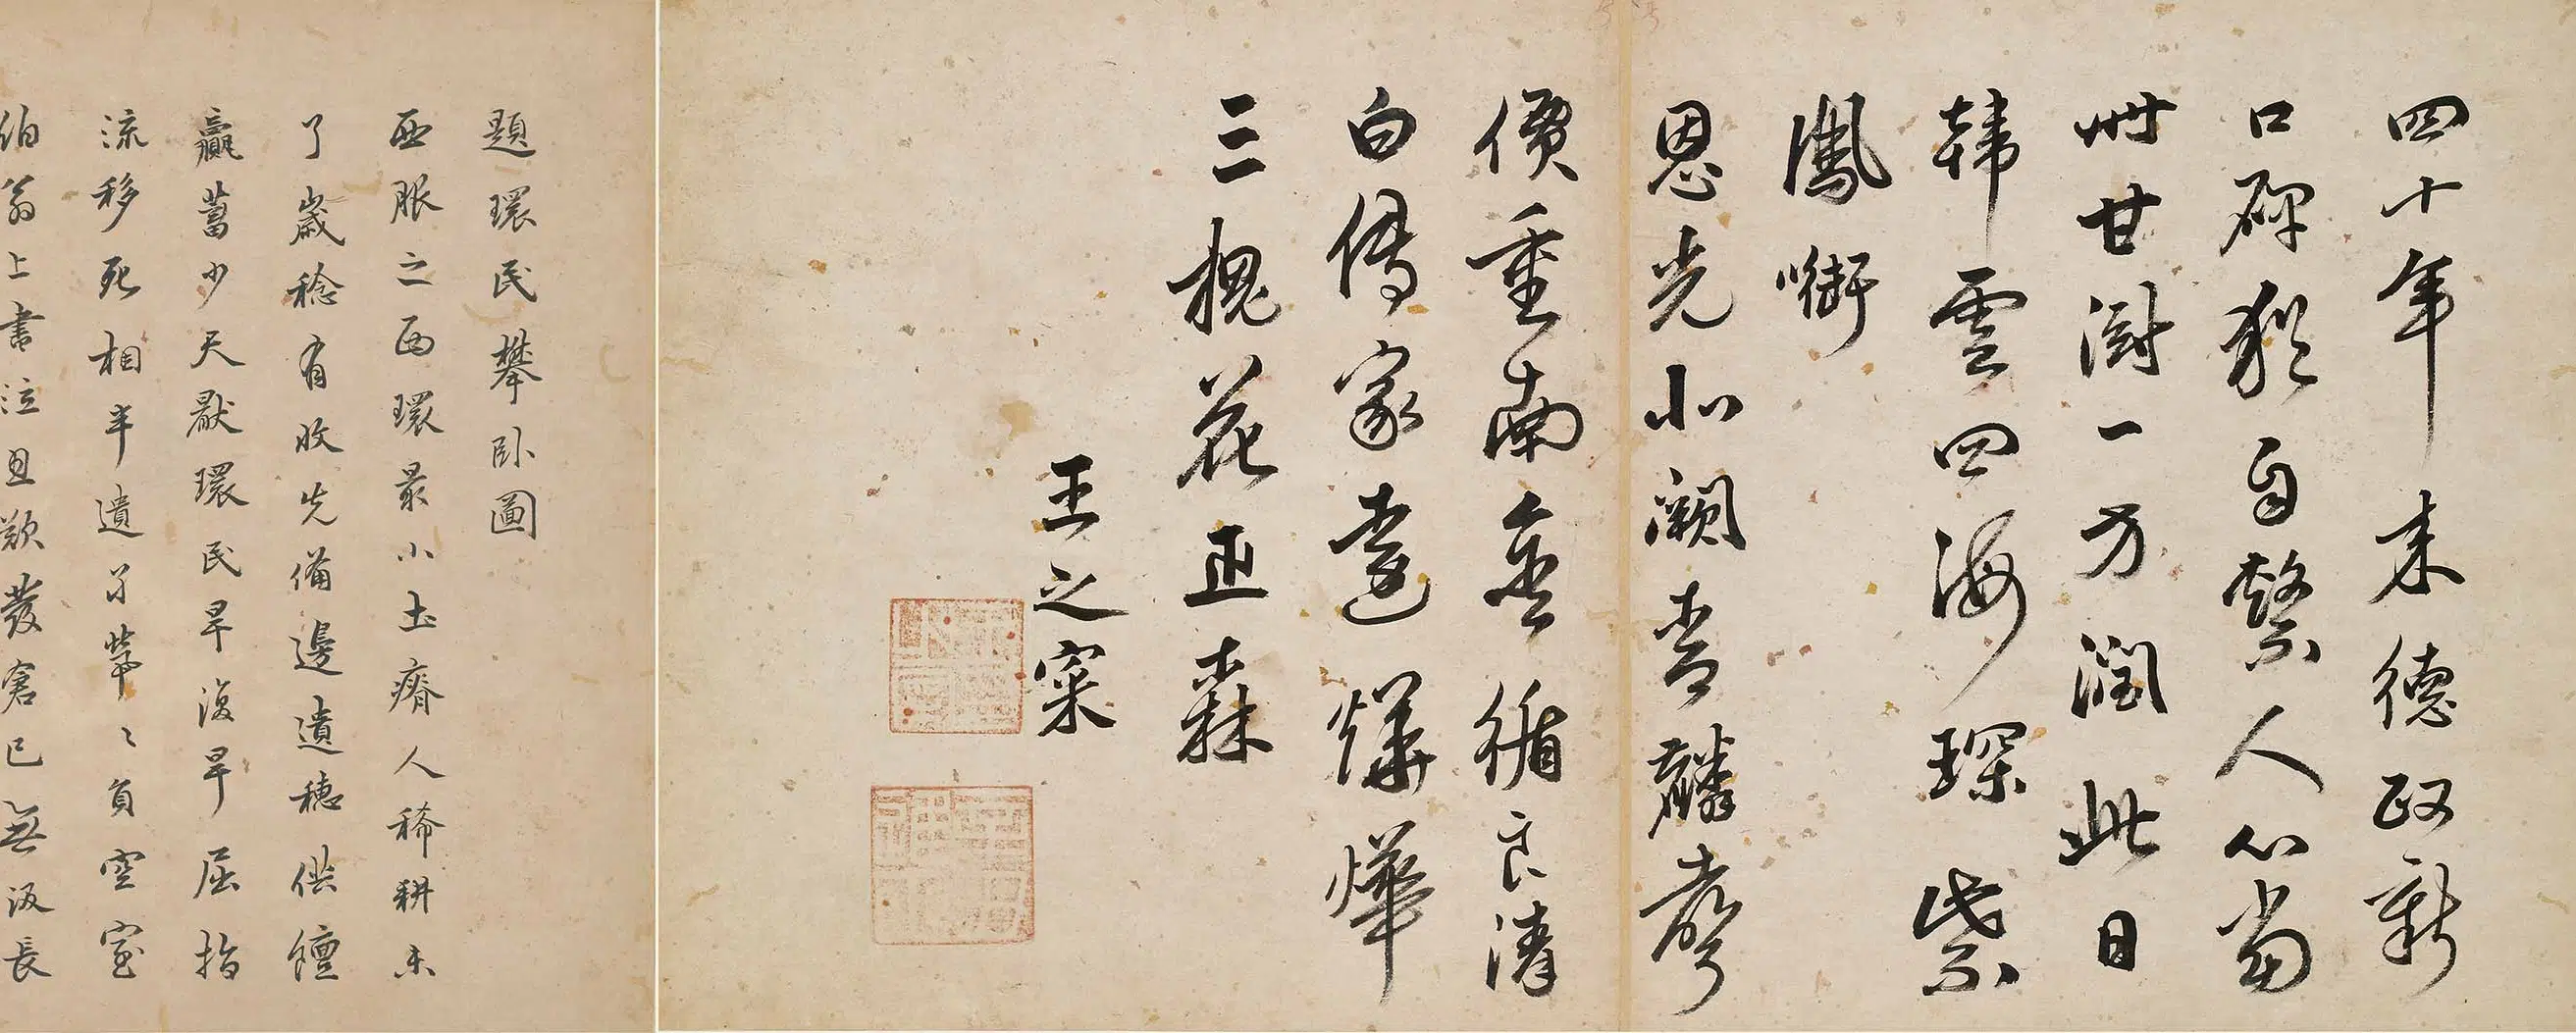 四十年来德政新
口碑猶自繫人心當
卅甘澍一方潤此日
韩雲四海琛紫
鳳銜
恩光北闕青麟
價重南金循良清
白傳家遠燁燁
三槐花正森
王之寀
題環民攀卧圖
西服之西環最小土瘠人稀耕未
了歲稔有收先備邊遺穗供饘
羸蓄少天厭環民旱復旱屈指
流移死相半遺子煢〻負空室
伯翁上書泣且歎發倉已無汲長